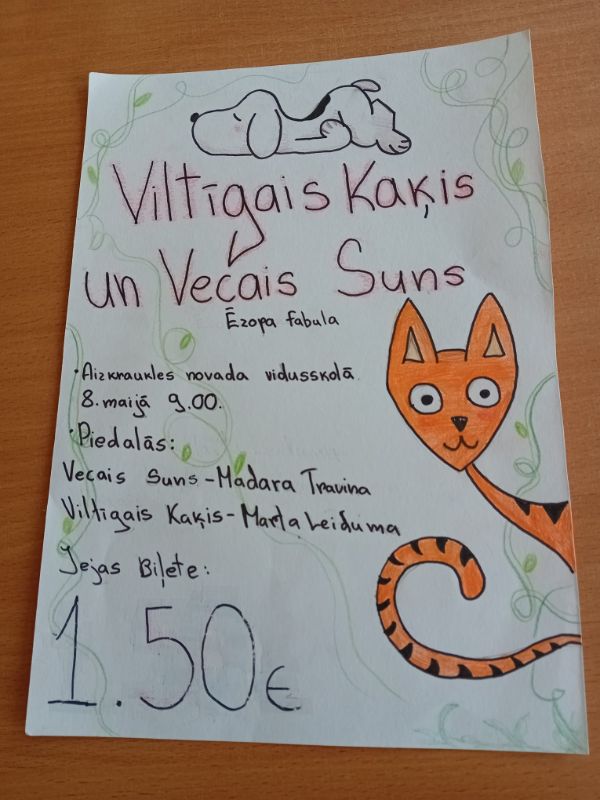 Viltīgais Kaķis
un Vecais Suns
Ēzopa fabula
• Aizkraukles novada vidusskolā
8. maijā 9.00.
• Piedalās:
Vecais Suns - Madara Traviņa
Viltīgais Kaķis - Marta Leiduma
Iejas Biļete:
1.50€